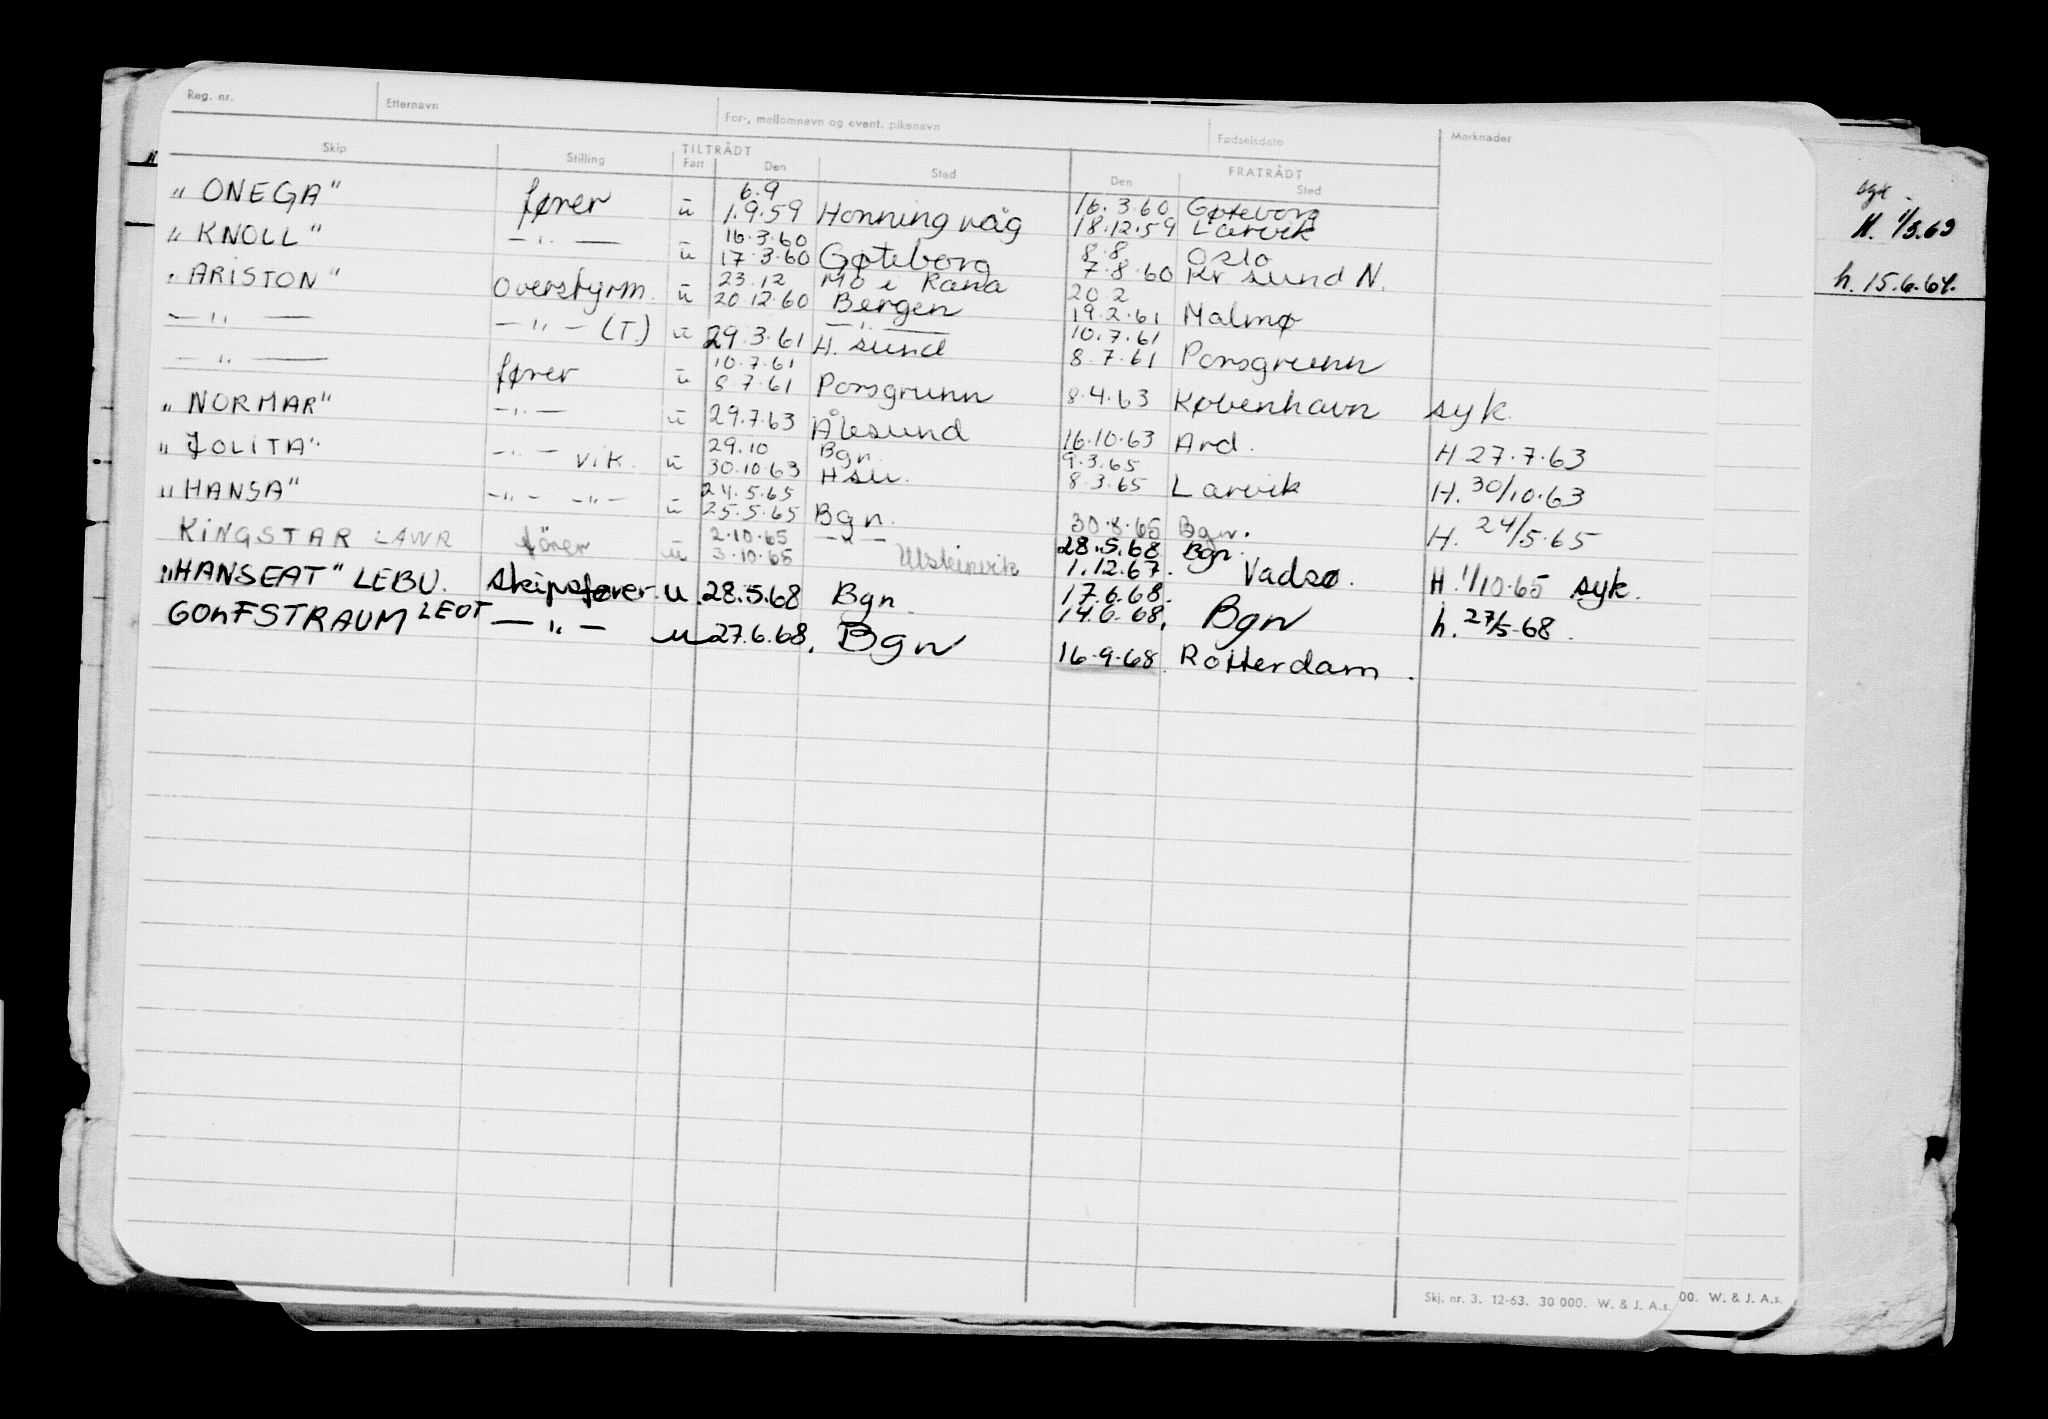 Reg. nr. Etternavn For-, mellomnavn og event. pikenavn Fødselsdato Merknader
Skip Stilling TILTRÅDT FRATRÅDT
Fart Den Sted Den Sted
6.9 16.3.60 Gøteborg
„ONEGA" fører u 1.9.59 Honningvåg 18.12.59 Larvik
16.3.60 8.8 Oslo
„KNOLL" —„— u 17.3.60 Gøteborg 7.8.60 Kr sund N.
23.12 Mo i Rana 20 2
„ARISTON" overstyrm. u 20.12.60 Bergen 19.2.61 Malmø
—„— 10.7.61
—„— —„— (T.) u 29.3.61 H. sund 8.7.61 Porsgrunn
10.7.61
—„— fører u 8.7.61 Porsgrunn 8.4.63 København syk
„NORMAR" —„— u 29.7.63 Ålesund 16.10.63 Ard. H 27.7.63
29.10 Bgn. 9.3.65
„JOLITA" —„— vik. u 30.10.63 Hsu. 8.3.65 Larvik H. 30/10.63
24.5.65
„HANSA" —„— —„— u 25.5.65 Bgn. 30.8.65 Bgn. H. 24/5.65
2.10.65 —„— 28.5.68 Bgn.
KINGSTAR LAWR fører u 3.10.65 Ulsteinvik 1.12.67. Vadsø. H 1/10.65 syk.
17.6.68.
„HANSEAT" LEBU. skipsfører u. 28.5.68 Bgn. 14.6.68. Bgn h. 27/5-68.
GOLFSTRAUM LEOT —„— u 27.6.68. Bgn 16.9.68. Rotterdam.
syk.
H. 1/3.63
h. 15.6.64.
Skj. nr. 3. 12-63. 30 000. W. & J. A.s.
00. W. & J. A.s.